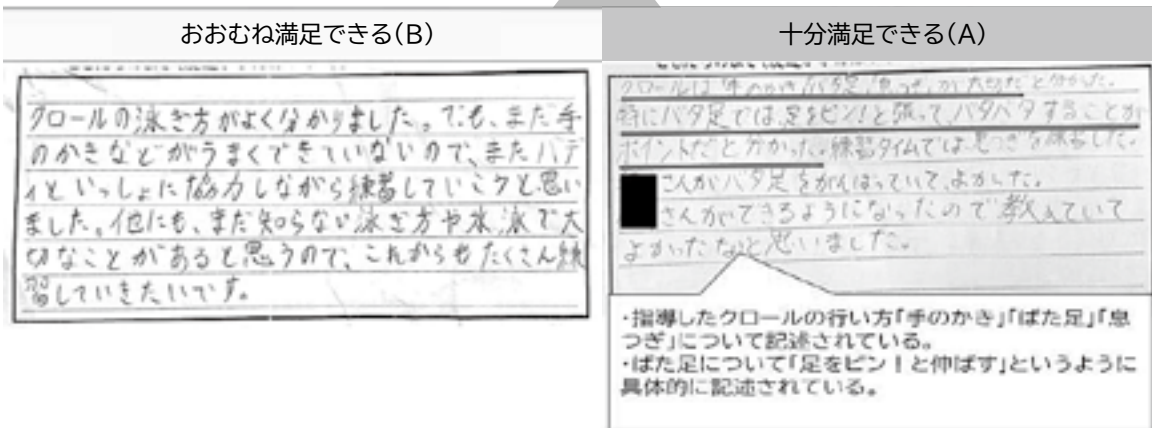 おおむね満足できる(B)
クロールの泳ぎ方がよく分かりました。でも、まだ手
のかきなどがうまくできていないので、またバデ
ィといっしょに協力しながら練習していこうと思い
ました。他にも、まだ知らない泳ぎ方や水泳で大
切なことがあると思うので、これからもたくさん練
習していきたいです。
十分満足できる(A)
クロールは「手のかき、バタ足、息つぎ」が大切だと分かった。
特にバタ足では、足をピン!と張って、バタバタすることが
ポイントだと分かった。練習タイムでは息つぎを練習した。
さんがバタ足をがんばっていて、よかった。
さんができるようになったので教えていて
よかったなと思いました。
・指導したクロールの行い方「手のかき」「ばた足」「息
つぎ」について記述されている。
・ばた足について「足をピン!と伸ばす」というように
具体的に記述されている。